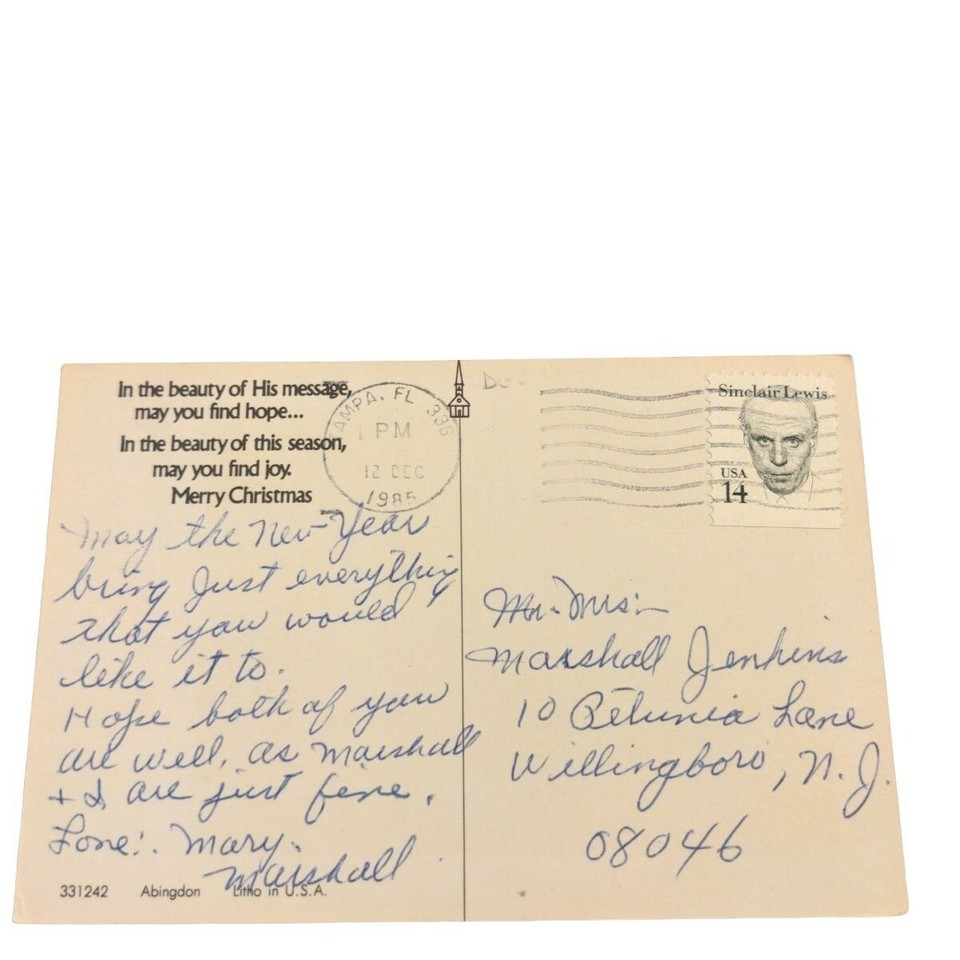 In the beauty of His message,
may you find hope...
In the beauty of this season,
may you find joy.
Merry Christmas
May the New Year
bring Just everything
that you would
like it to.
Hope both of you
are well, as Marshall
+ I are just fine.
Love: Mary.
Marshall
331242 Abingdon Litho in U.S.A.
TAMPA, FL 336
PM
12 DEC
1985
Sinclair Lewis
USA
14
Mr. Mrs:
Marshall Jenkins
10 Petunia Lane
Willingboro, N.J.
08046